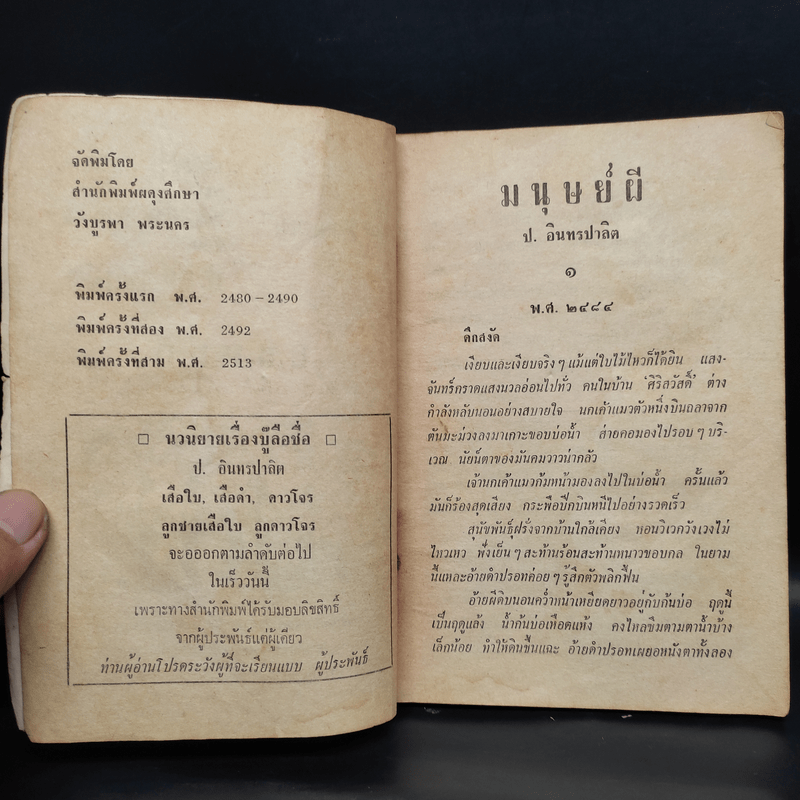 จัดพิมโดย
สำนักพิมพ์ผดุงศึกษา
วังบูรพา พระนคร
พิมพ์ครั้งแรก พ.ศ. 2480-2490
พิมพ์ครั้งที่สอง พ.ศ. 2492
พิมพ์ครั้งที่สาม พ.ศ. 2513
□ นวนิยายเรื่องบู๊ลือชื่อ □
ป. อินทรปาลิต
เสือใบ, เสือดำ, ดาวโจร
ลูกชายเสือใบ ลูกดาวโจร
จะอออกตามลำดับต่อไป
ในเร็ววันนี้
เพราะทางสำนักพิมพ์ได้รับมอบลิขสิทธิ์
จากผู้ประพันธ์แต่ผู้เดียว
ท่านผู้อ่านโปรดระวังผู้ที่จะเรียนแบบ ผู้ประพันธ์
มนุษย์ผี
ป. อินทรปาลิต
๑
พ.ศ. ๒๔๘๔
ดึกสงัด
เงียบและเงียบจริงๆ แม้แต่ใบไม้ไหวก็ได้ยิน แสง-
จันทร์กราดแสงนวลอ่อนไปทั่ว คนในบ้าน ‘ศิริสวัสดิ์’ ต่าง
กำลังหลับนอนอย่างสบายใจ นกเค้าแมวตัวหนึ่งบินถลาจาก
ต้นมะม่วงลงมาเกาะขอบบ่อน้ำ ส่ายคอมองไปรอบๆ บริ-
เวณ นัยน์ตาของมันคมวาวน่ากลัว
เจ้านกเค้าแมวก้มหน้ามองลงไปในบ่อน้ำ ครั้นแล้ว
มันก็ร้องสุดเสียง กระพือปีกบินหนีไปอย่างรวดเร็ว
สุนัขพันธุ์ฝรั่งจากบ้านใกล้เคียง หอนวิเวกวังเวงไม่
ไหวเหว ฟังเย็นๆ สะท้านร้อนสะท้านหนาวชอบกล ในยาม
นี้แหละอ้ายดำปรอทค่อยๆ รู้สึกตัวพลิกฟื้น
อ้ายผีดิบนอนคว่ำหน้าเหยียดยาวอยู่กับก้นบ่อ ฤดูนี้
เป็นฤดูแล้ง น้ำก้นบ่อเหือดแห้ง คงไหลซึมตามตาน้ำบ้าง
เล็กน้อย ทำให้ดินชื้นแฉะ อ้ายดำปรอทเผยอหนังตาทั้งสอง